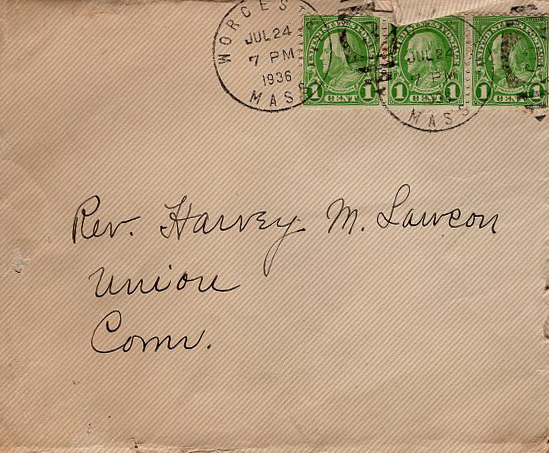 WORCEST
JUL 24
7 PM
1936
MASS
JUL 24
7 PM
MASS
UNITED STATES POSTAGE
1 CENT 1
1 CENT 1
1 CENT 1
Rev. Harvey M. Lawson
Union
Conn.